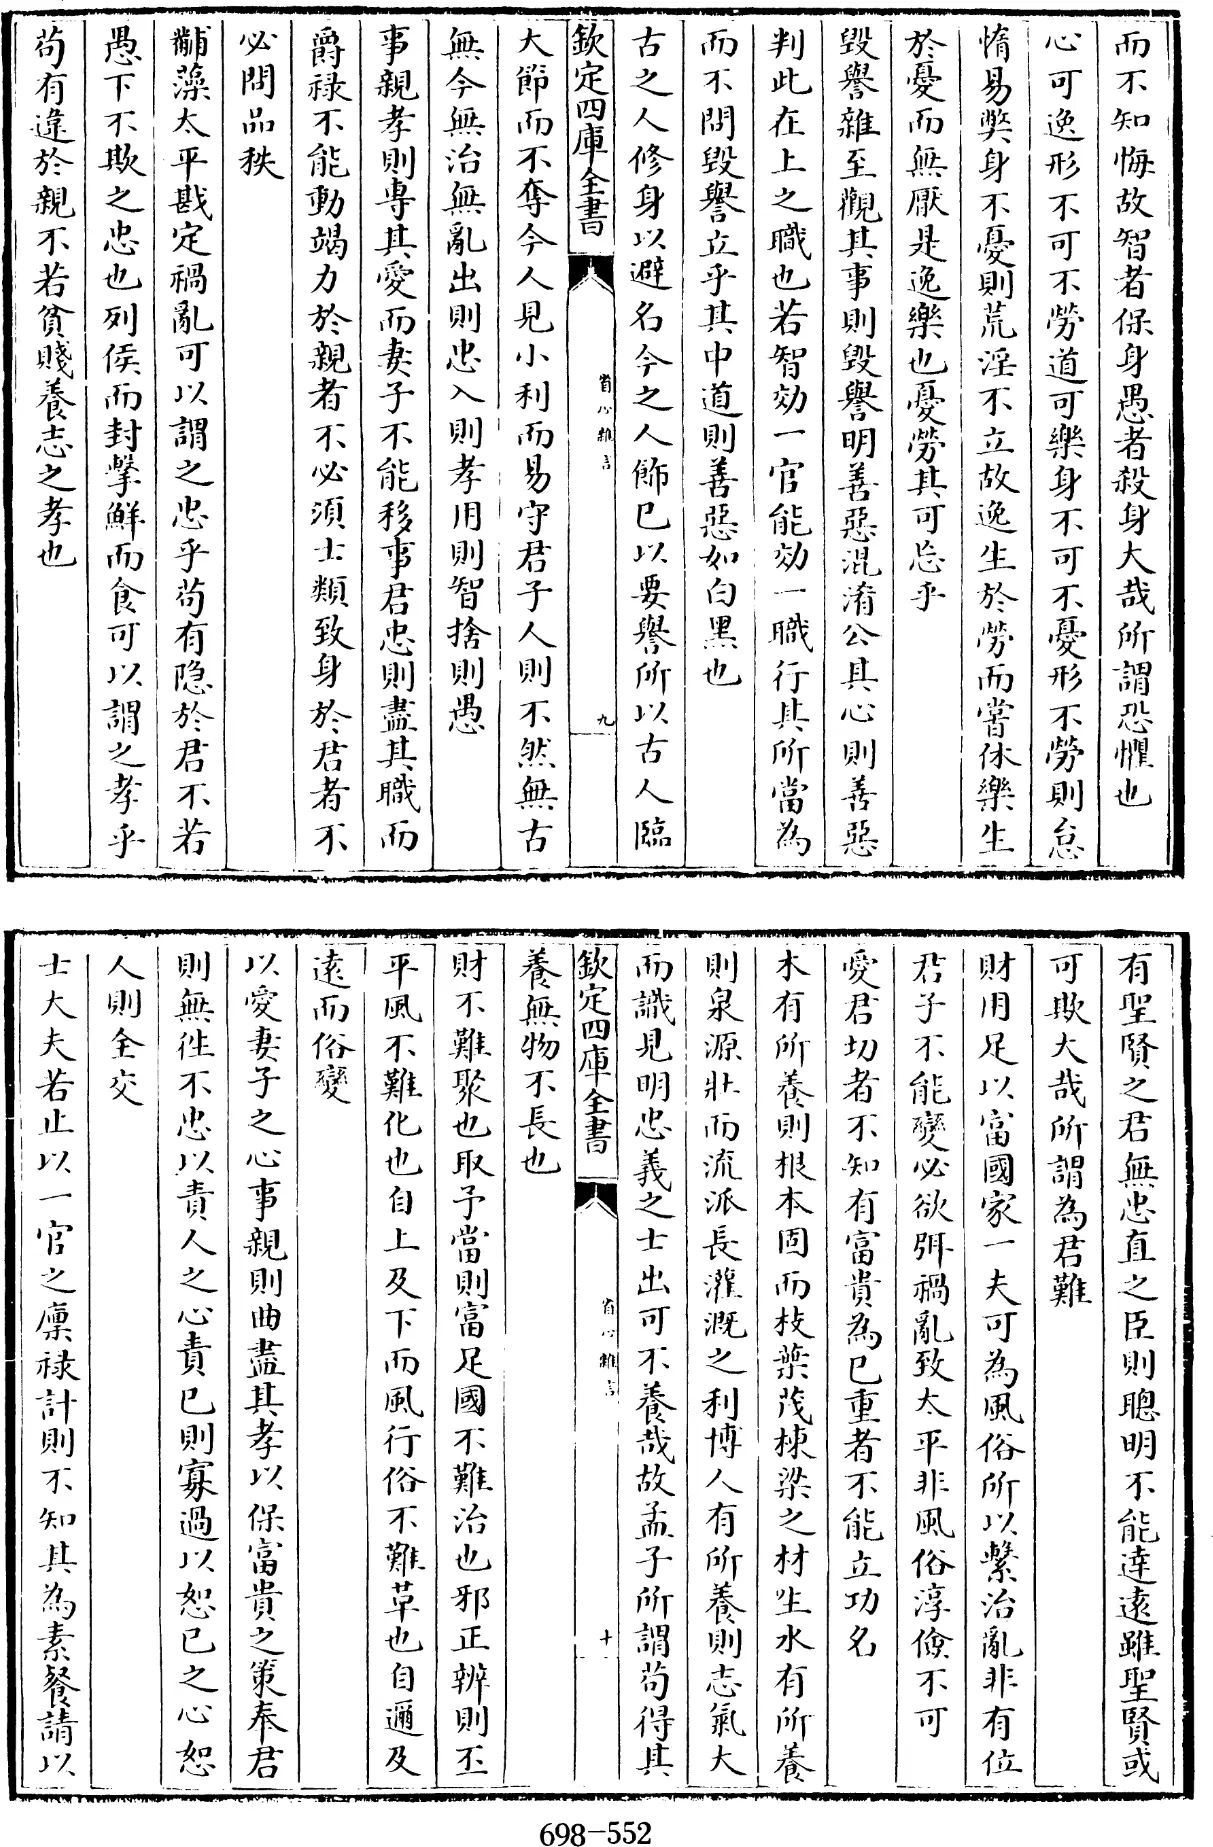 而不知悔故智者保身愚者殺身大哉所謂恐懼也
心可逸形不可不勞道可樂身不可不憂形不勞則怠
惰易弊身不憂則荒淫不立故逸生於勞而嘗休樂生
於憂而無厭是逸樂也憂勞其可忘乎
毀譽雜至觀其事則毀譽明善惡混淆公其心則善惡
判此在上之職也若智効一官能効一職行其所當為
而不問毀譽立乎其中道則善惡如白黑也
古之人修身以避名今之人飾己以要譽所以古人臨
欽定四庫全書
省心雜言
九
大節而不奪今人見小利而易守君子人則不然無古
無今無治無亂出則忠入則孝用則智捨則愚
事親孝則專其愛而妻子不能移事君忠則盡其職而
爵祿不能動竭力於親者不必須士類致身於君者不
必問品秩
黼藻太平戡定禍亂可以謂之忠乎苟有隐於君不若
愚下不欺之忠也列侯而封擊鮮而食可以謂之孝乎
苟有違於親不若貧賤養志之孝也
有聖賢之君無忠直之臣則聰明不能達遠雖聖賢或
可欺大哉所謂為君難
財用足以富國家一夫可為風俗所以繫治亂非有位
君子不能變必欲弭禍亂致太平非風俗淳儉不可
愛君切者不知有富貴為己重者不能立功名
木有所養則根本固而枝葉茂棟梁之材生水有所養
則泉源壯而流派長灌溉之利博人有所養則志氣大
而識見明忠義之士出可不養哉故孟子所謂苟得其
欽定四庫全書
省心雜言
十
養無物不長也
財不難聚也取予當則富足國不難治也邪正辨則丕
平風不難化也自上及下而風行俗不難革也自邇及
遠而俗變
以愛妻子之心事親則曲盡其孝以保富貴之策奉君
則無徃不忠以責人之心責己則寡過以恕己之心恕
人則全交
士大夫若止以一官之廩祿計則不知其為素餐請以
698-552